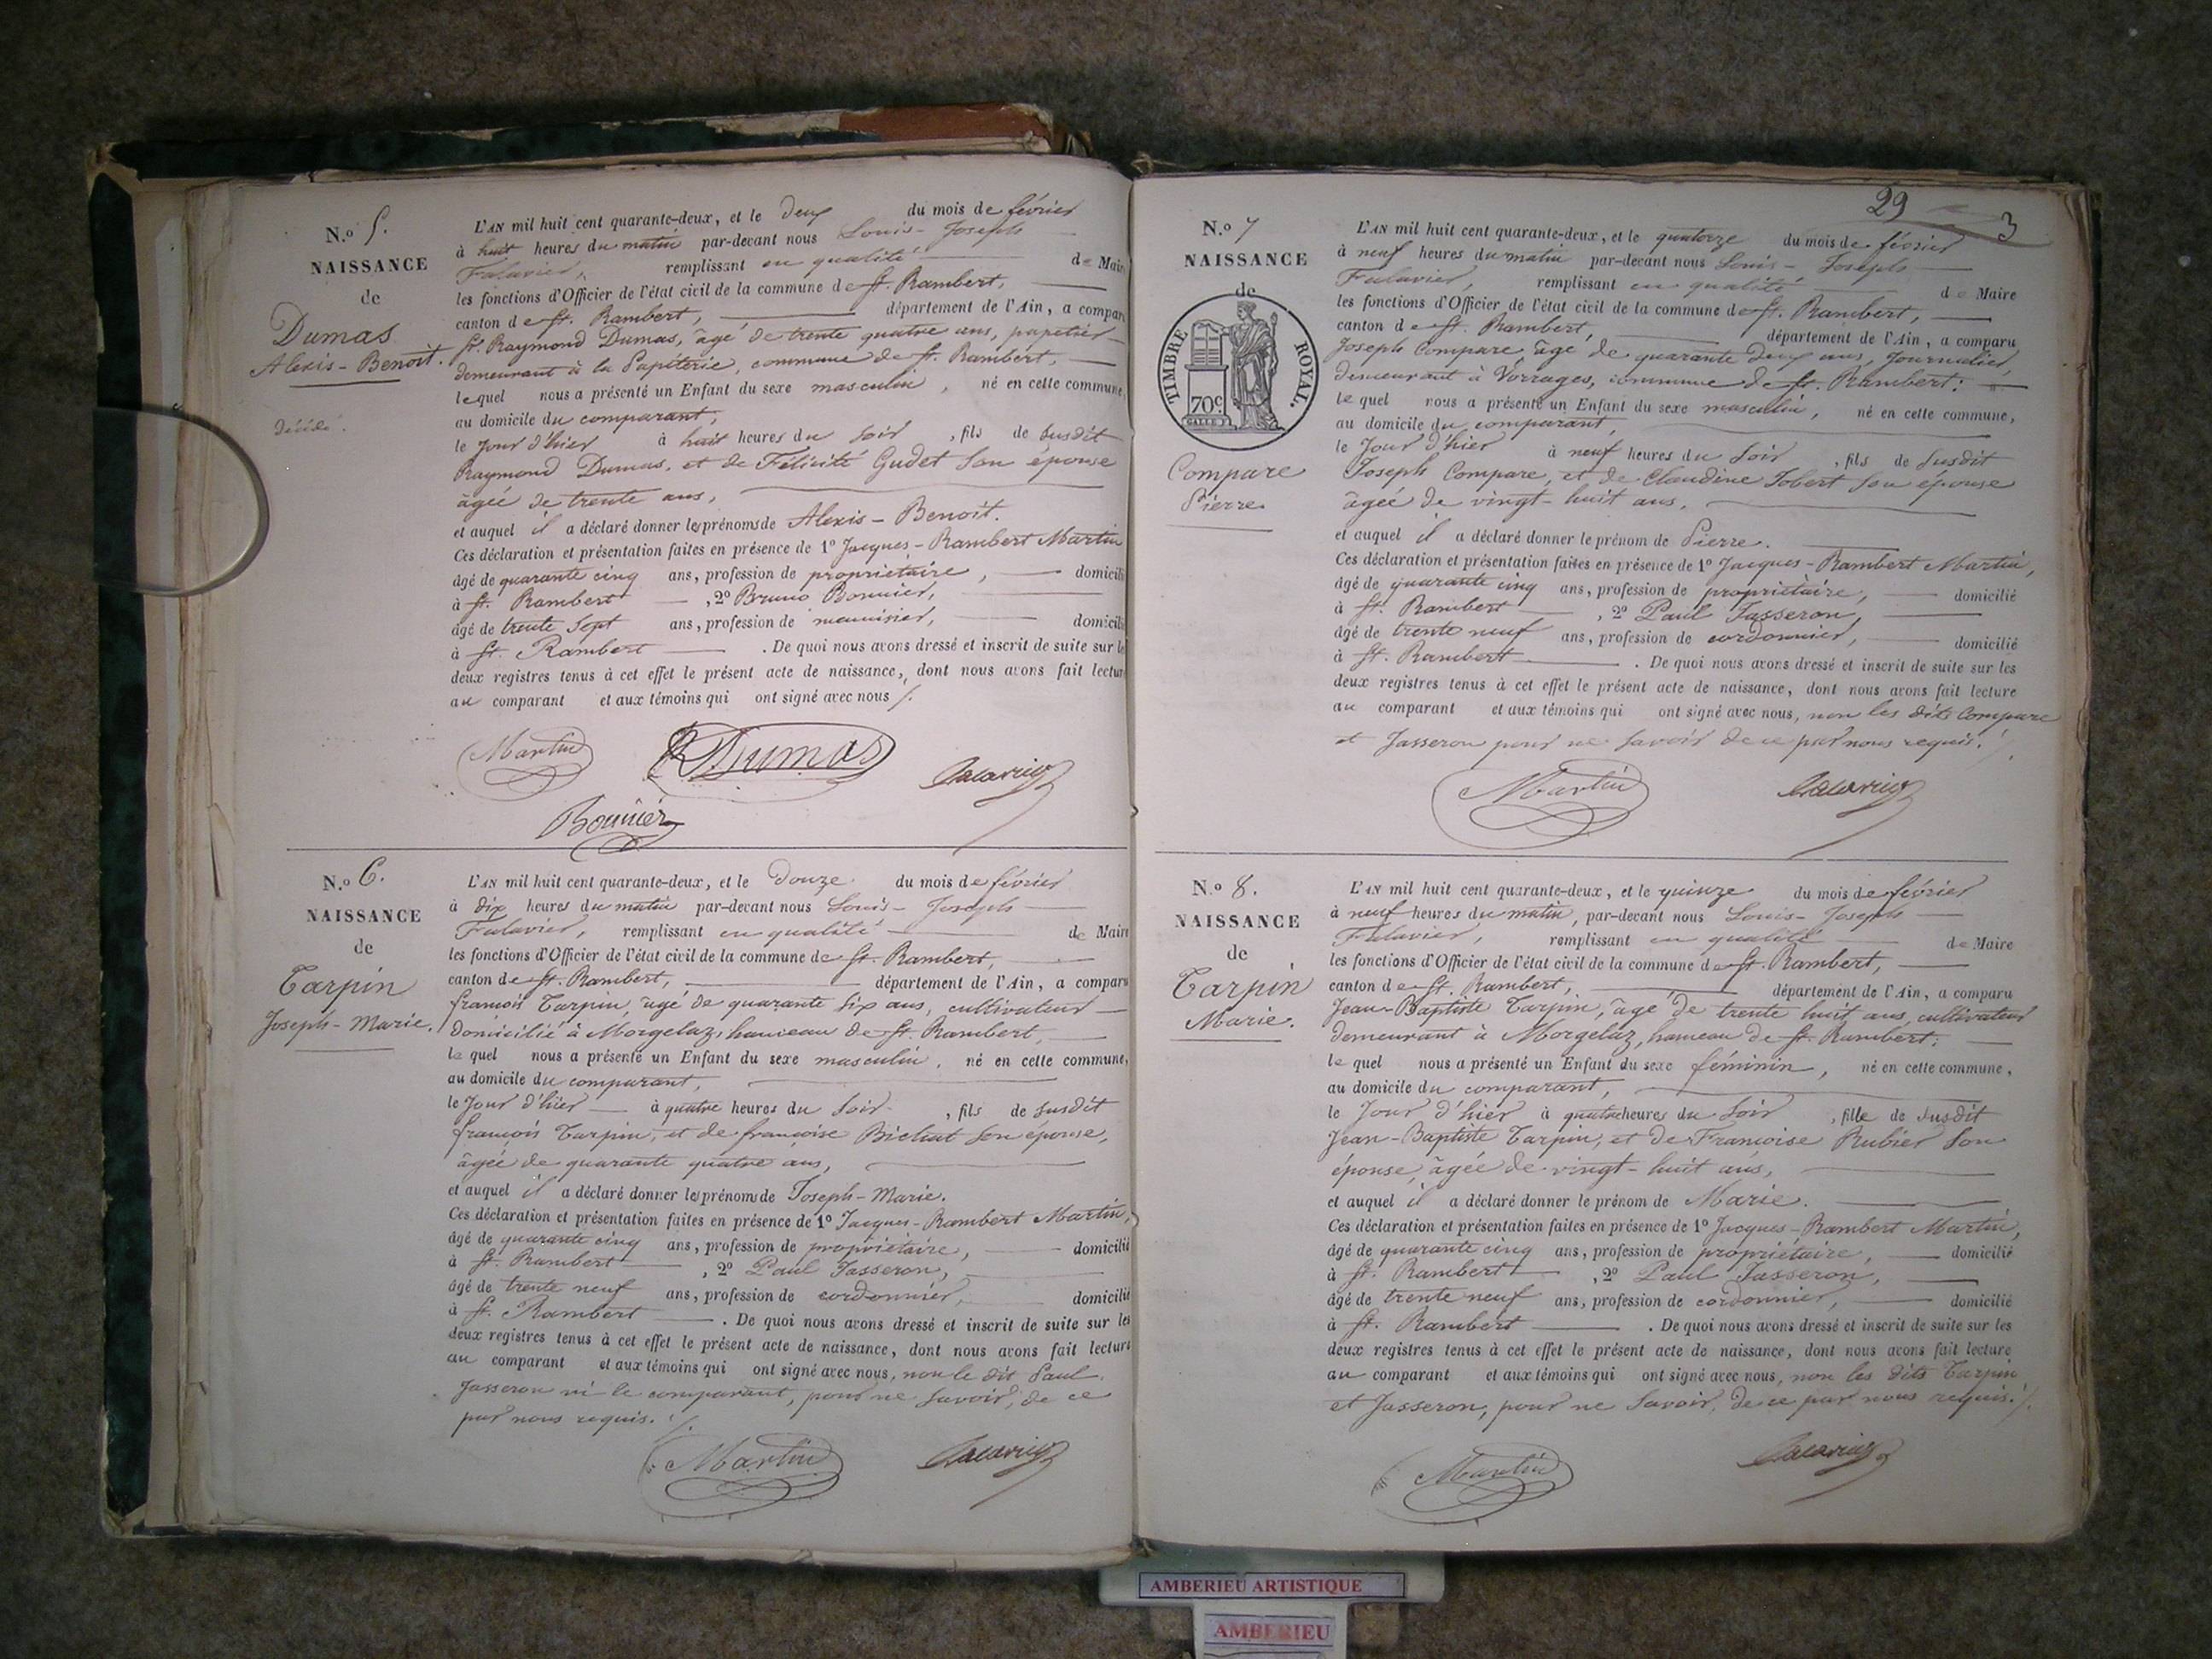 N.o 5.
NAISSANCE
de
Dumas
Alexis-Benoit.
Décédé.
L'AN mil huit cent quarante-deux, et le deux du mois de février
à huit heures du matin par-devant nous Louis-Joseph
Falavier, remplissant en qualité de Mair
les fonctions d'Officier de l'état civil de la commune de St. Rambert,
canton de St. Rambert, département de l'Ain, a compar
Sr. Raymond Dumas, âgé de trente quatre ans, papetier
demeurant à la Papéterie, commune de St. Rambert,
lequel nous a présenté un Enfant du sexe masculin, né en cette commune,
au domicile du comparant,
le Jour d'hier à huit heures du soir, fils de susdit
Raymond Dumas, et de Félicité Gudet son épouse
âgée de trente ans,
et auquel il a déclaré donner les prénoms de Alexis-Benoit.
Ces déclaration et présentation faites en présence de 1o Jacques-Rambert Martin
âgé de quarante cinq ans, profession de propriétaire, domicili
à St. Rambert, 2o Bruno Bonnier,
âgé de trente sept ans, profession de menuisier, domicili
à St. Rambert. De quoi nous avons dressé et inscrit de suite sur le
deux registres tenus à cet effet le présent acte de naissance, dont nous avons fait lectur
au comparant et aux témoins qui ont signé avec nous /.
Martin R Dumas
Bonnier
N.o 6.
NAISSANCE
de
Tarpin
Joseph-Marie.
L'AN mil huit cent quarante-deux, et le douze du mois de février
à dix heures du matin par-devant nous Louis-Joseph
Falavier, remplissant en qualité de Maire
les fonctions d'Officier de l'état civil de la commune de St. Rambert,
canton de St. Rambert, département de l'Ain, a comparu
françois Tarpin, âgé de quarante six ans, cultivateur
domicilié à Morgelaz, hameau de St. Rambert,
lequel nous a présenté un Enfant du sexe masculin, né en cette commune,
au domicile du comparant,
le Jour d'hier à quatre heures du soir, fils de susdit
françois Tarpin, et de françoise Bichat son épouse,
âgée de quarante quatre ans,
et auquel il a déclaré donner les prénoms de Joseph-Marie.
Ces déclaration et présentation faites en présence de 1o Jacques-Rambert Martin,
âgé de quarante cinq ans, profession de propriétaire, domicilié
à St. Rambert, 2o Paul Jasseron,
âgé de trente neuf ans, profession de cordonnier, domicilié
à St. Rambert. De quoi nous avons dressé et inscrit de suite sur les
deux registres tenus à cet effet le présent acte de naissance, dont nous avons fait lecture
au comparant et aux témoins qui ont signé avec nous, non le dit Paul
Jasseron ni le comparant, pour ne savoir, de ce
par nous requis. /.
Martin
29 3
N.o 7
NAISSANCE
de
TIMBRE ROYAL.
70c
Compare
Pierre
L'AN mil huit cent quarante-deux, et le quatorze du mois de février
à neuf heures du matin par-devant nous Louis-Joseph
Falavier, remplissant en qualité de Maire
les fonctions d'Officier de l'état civil de la commune de St. Rambert,
canton de St. Rambert, département de l'Ain, a comparu
Joseph Compare, âgé de quarante deux ans, Journalier,
demeurant à Vorrages, commune de St. Rambert:
lequel nous a présenté un Enfant du sexe masculin, né en cette commune,
au domicile du comparant,
le Jour d'hier à neuf heures du soir, fils de susdit
Joseph Compare, et de Claudine Jobert son épouse
âgée de vingt-huit ans,
et auquel il a déclaré donner le prénom de Pierre.
Ces déclaration et présentation faites en présence de 1o Jacques-Rambert Martin,
âgé de quarante cinq ans, profession de propriétaire, domicilié
à St. Rambert, 2o Paul Jasseron,
âgé de trente neuf ans, profession de cordonnier, domicilié
à St. Rambert. De quoi nous avons dressé et inscrit de suite sur les
deux registres tenus à cet effet le présent acte de naissance, dont nous avons fait lecture
au comparant et aux témoins qui ont signé avec nous, non les dits Compare
et Jasseron pour ne savoir de ce par nous requis. /.
Martin
N.o 8.
NAISSANCE
de
Tarpin
Marie.
L'AN mil huit cent quarante-deux, et le quinze du mois de février
à neuf heures du matin, par-devant nous Louis-Joseph
Falavier, remplissant en qualité de Maire
les fonctions d'Officier de l'état civil de la commune de St. Rambert,
canton de St. Rambert, département de l'Ain, a comparu
Jean-Baptiste Tarpin, âgé de trente huit ans, cultivateur
demeurant à Morgelaz, hameau de St. Rambert;
lequel nous a présenté un Enfant du sexe féminin, né en cette commune,
au domicile du comparant,
le Jour d'hier à quatre heures du soir, fille de susdit
Jean-Baptiste Tarpin, et de Françoise Rubier son
épouse, âgée de vingt-huit ans,
et auquel il a déclaré donner le prénom de Marie.
Ces déclaration et présentation faites en présence de 1o Jacques-Rambert Martin,
âgé de quarante cinq ans, profession de propriétaire, domicilié
à St. Rambert, 2o Paul Jasseron,
âgé de trente neuf ans, profession de cordonnier, domicilié
à St. Rambert. De quoi nous avons dressé et inscrit de suite sur les
deux registres tenus à cet effet le présent acte de naissance, dont nous avons fait lecture
au comparant et aux témoins qui ont signé avec nous, non les dits Tarpin
et Jasseron, pour ne savoir, de ce par nous requis. /.
Martin
AMBERIEU ARTISTIQUE
AMBERIEU